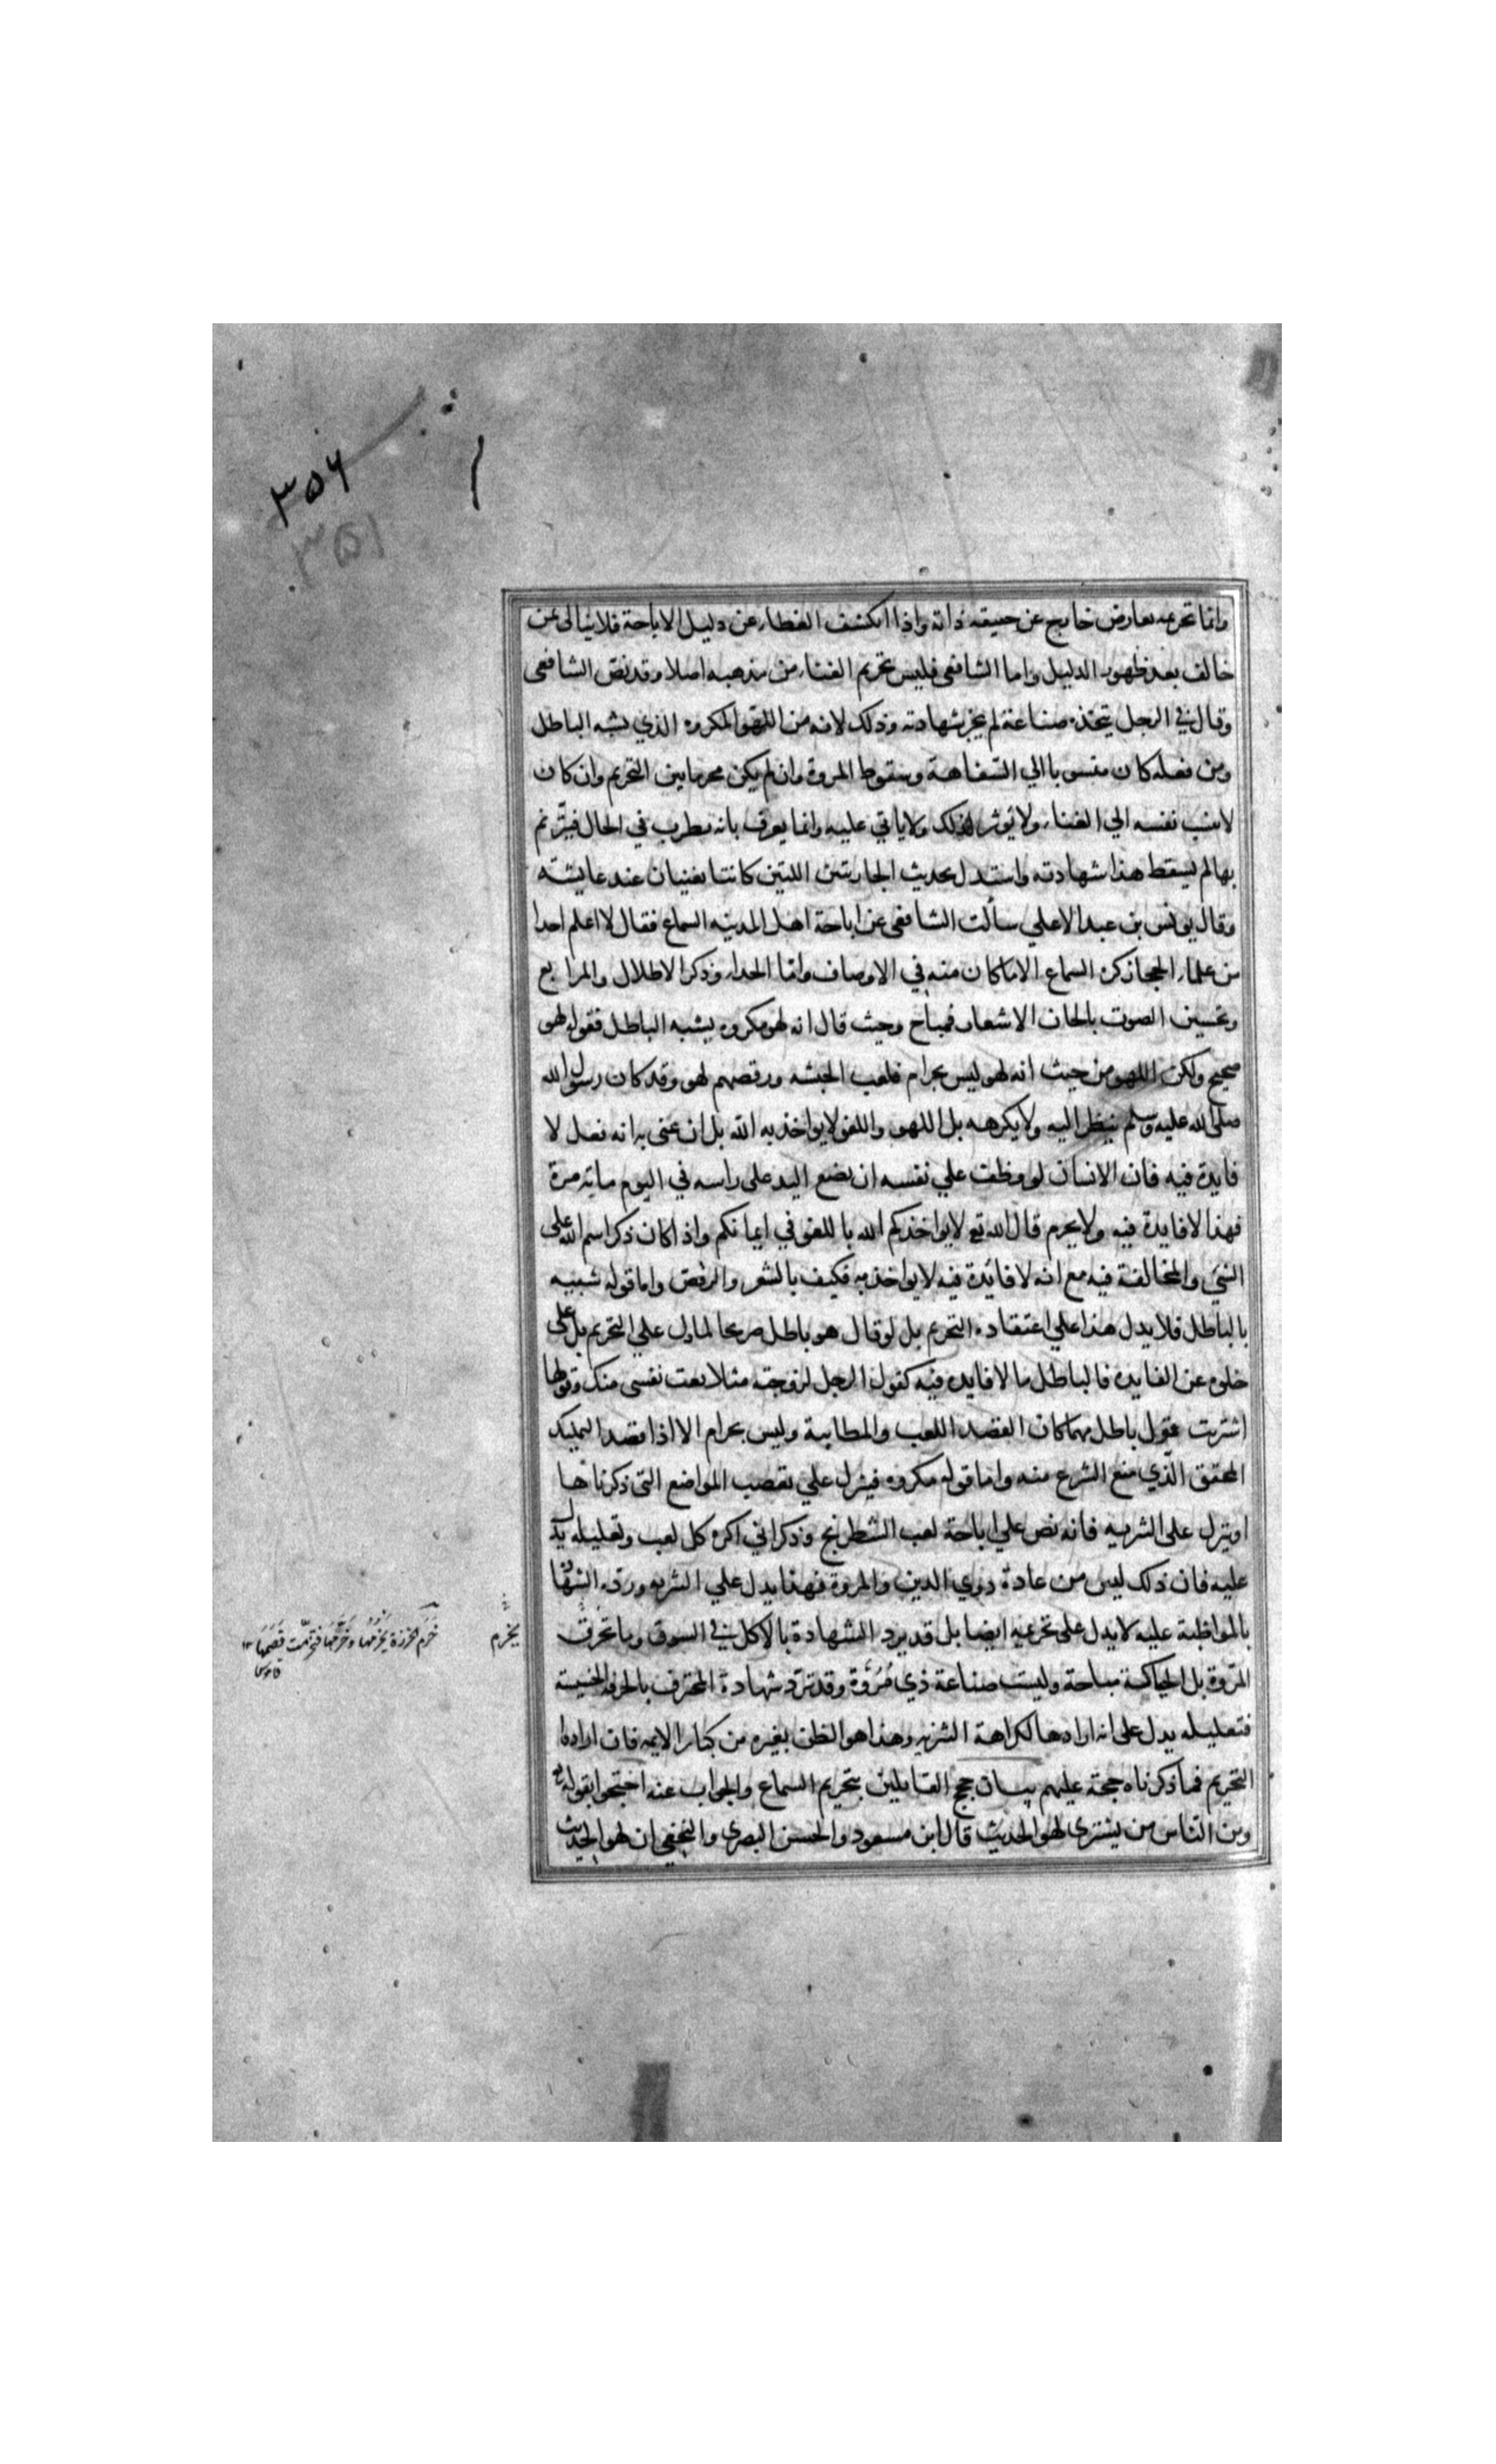 ٣٥٦
٣٥١
وانما تحريمه بعارض خارج عن حقيقة ذاته واذا انكشف الغطاء عن دليل الاباحة فلا نبالي عن
خالف بعد ظهور الدليل واما الشافعي فليس تحريم الغناء من مذهبه اصلا وقد نص الشافعي
وقال في الرجل يتخذه صناعة لم يجز شهادته وذلك لانه من اللهو المكروه الذي يشبه الباطل
ومن فعله كان منسوبا الي السفاهة وسقوط المروة وان لم يكن محرما بين التحريم وان كان
لا ينسب نفسه الي الغناء ولا يوثر لذلك ولا ياتي عليه وانما يعرف بانه يطرب في الحال فيترنم
بها لم يسقط هذا شهادته واستدل بحديث الجاريتين اللتين كانتا يغنيان عند عايشة
وقال يونس بن عبد الاعلي سألت الشافعي عن اباحة اهل المدينه السماع فقال لا اعلم احدا
من علماء الحجاز كره السماع الا ما كان منه في الاوصاف واما الحداء وذكر الاطلال والمرابع
وتحسين الصوت بالحان الاشعار فمباح وحيث قال انه لهو مكروه يشبه الباطل فقوله لهو
صحيح ولكن اللهو من حيث انه لهو ليس بحرام فلعب الحبشه ورقصهم لهو وقد كان رسول الله
صلى الله عليه وسلم ينظر اليه ولا يكرهه بل اللهو واللغو لا يواخذ به الله بل ان عنى به انه فعل لا
فايدة فيه فان الانسان لو وظف علي نفسه ان يضع اليد على راسه في اليوم مايه مرة
فهذا لا فايدة فيه ولا يحرم قال الله تع لا يواخذكم الله باللغو في ايمانكم واذا كان ذكر اسم الله على
الشي والمخالفة فيه مع انه لا فائدة فيه لا يواخذ به فكيف بالشعر والرقص واما قوله شبيه
بالباطل فلا يدل هذا علي اعتقاده التحريم بل لو قال هو باطل صريحا لما دل علي التحريم بل على
خلوه عن الفايدة فالباطل ما لا فايدة فيه كقول الرجل لزوجته مثلا بعت نفسي منك وقولها
اشتريت قول باطل مهما كان القصد اللعب والمطايبة وليس بحرام الا اذا قصد التمليك
المحقق الذي منع الشرع منه واما قوله مكروه فينزل علي بعض المواضع التي ذكرناها
او ينزل على التنزيه فانه نص علي اباحة لعب الشطرنج وذكر اني اكره كل لعب وتعليله يدل
عليه فان ذلك ليس من عادة ذوي الدين والمروة فهذا يدل علي التنزيه ورده الشهادة
بالمواظبة عليه لا يدل على تحريمه ايضا بل قد يرد الشهادة بالاكل في السوق وما تخرق
المروة بل الحياكة مباحة وليست صناعة ذي مروة وقد ترد شهادة المحترف بالحرفة الخسيسة
فتعليله يدل على انه اراد بها لكراهة التنزيه وهذا هو الظن بغيره من كبار الايمه فان ارادوا
التحريم فما ذكرناه حجة عليهم بيان حجج القايلين بتحريم السماع والجواب عنه احتجوا بقوله تع
ومن الناس من يشتري لهو الحديث قال ابن مسعود والحسن البصري والنخعي ان لهو الحديث
يخرم
خرم الخرزة يخرمها وخرمها فتخرمت فصمها ١٢
قاموس